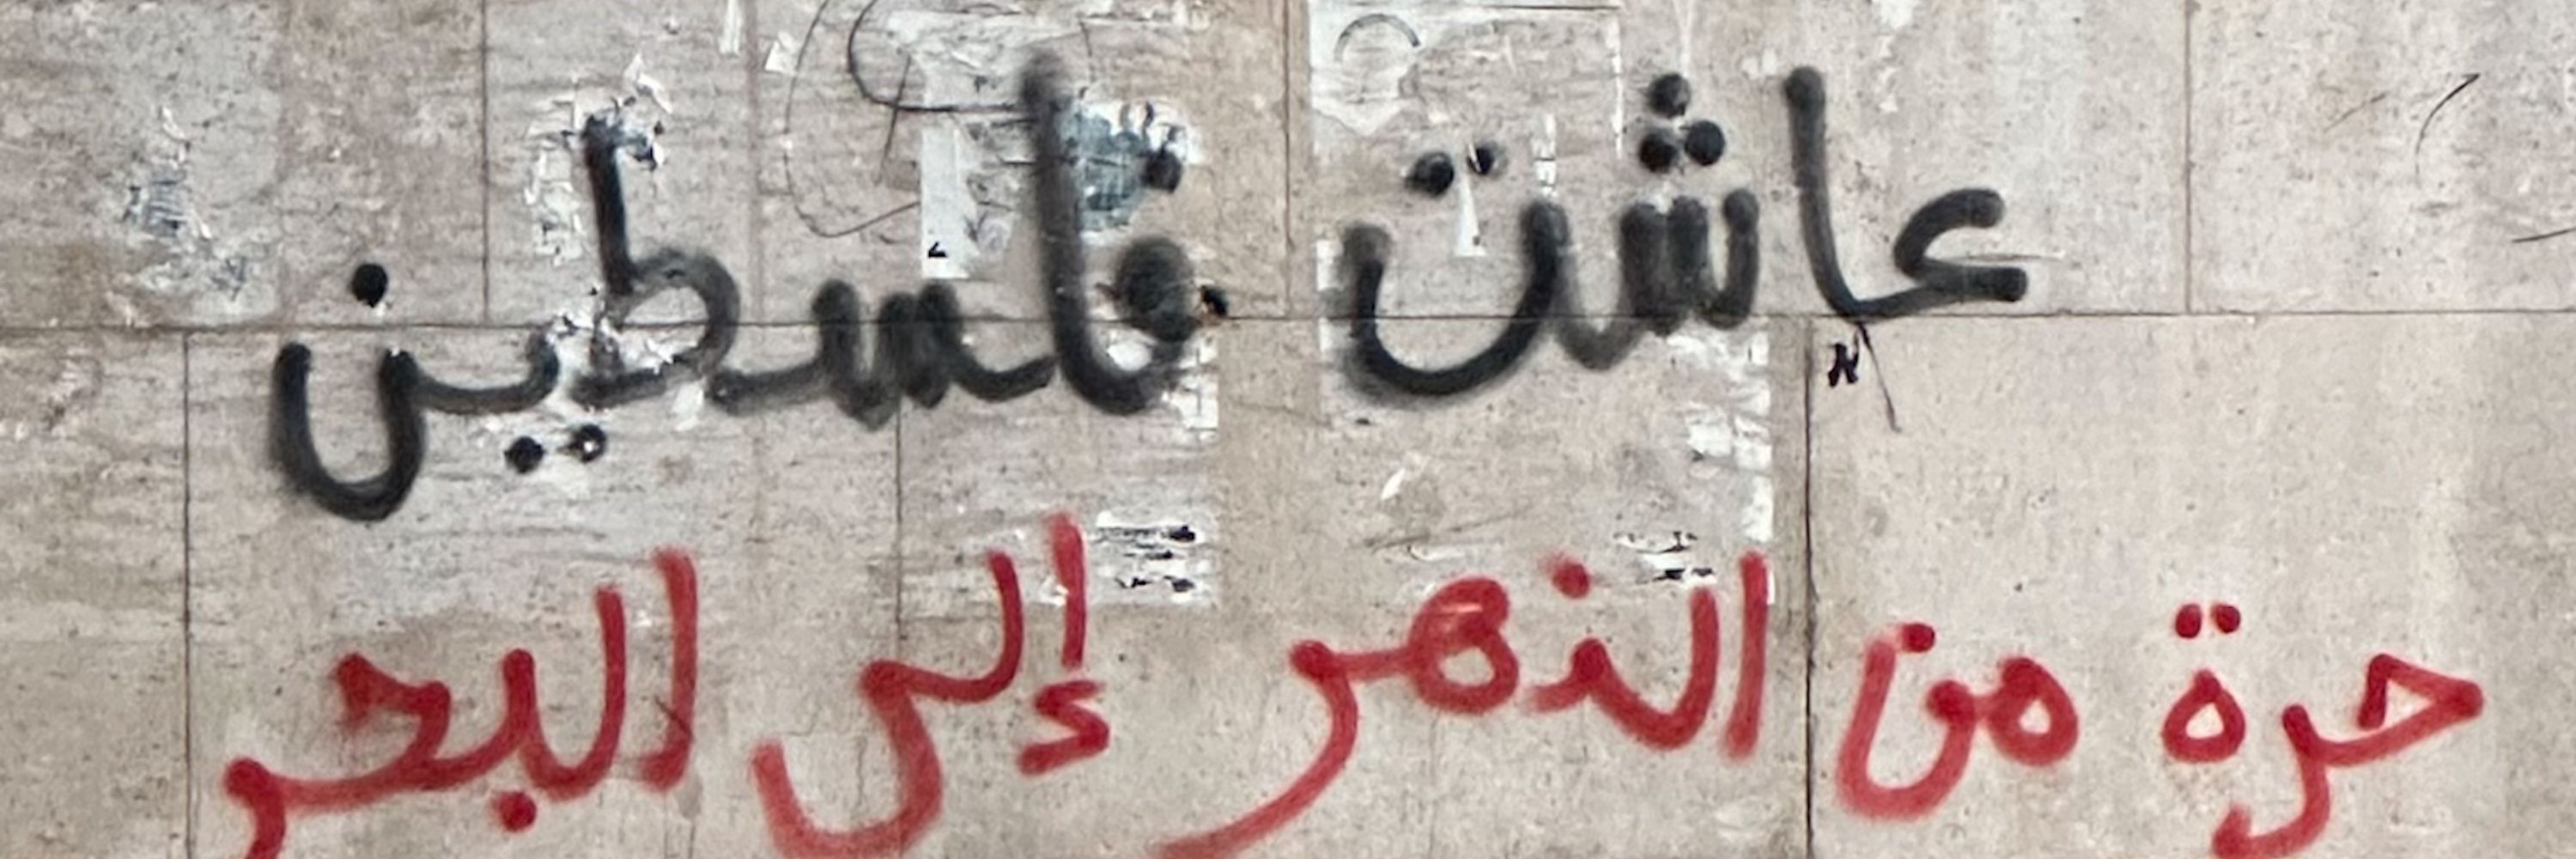 عاشت فلسطين
حرة من النهر إلى البحر